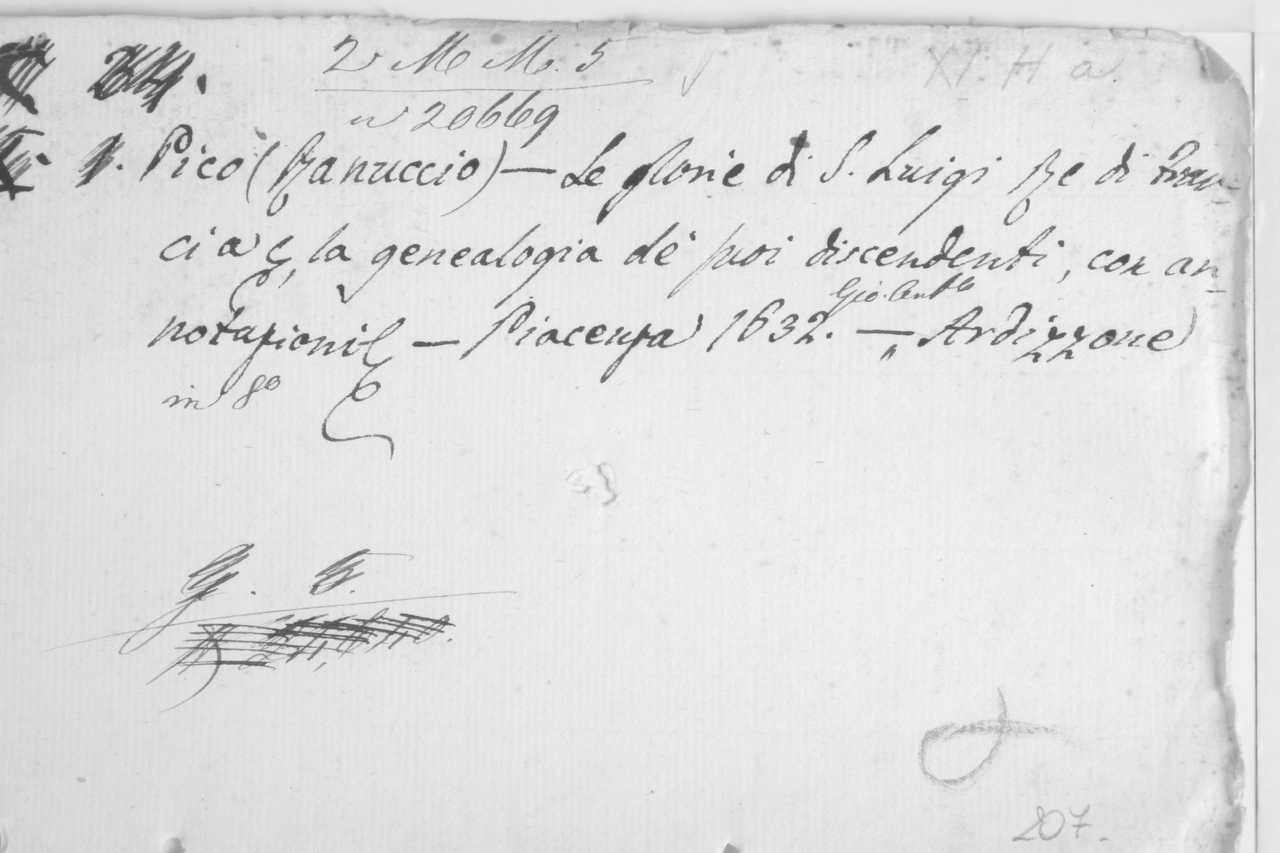 2 M M. 5
XI. H a.
n 20669
Pico (Ranuccio) — Le glorie di S. Luigi Re di Fran-
cia e la genealogia de' suoi discendenti, con an-
notazioni — Piacenza 1632. — Ardizzone
in 8º
G.
207.